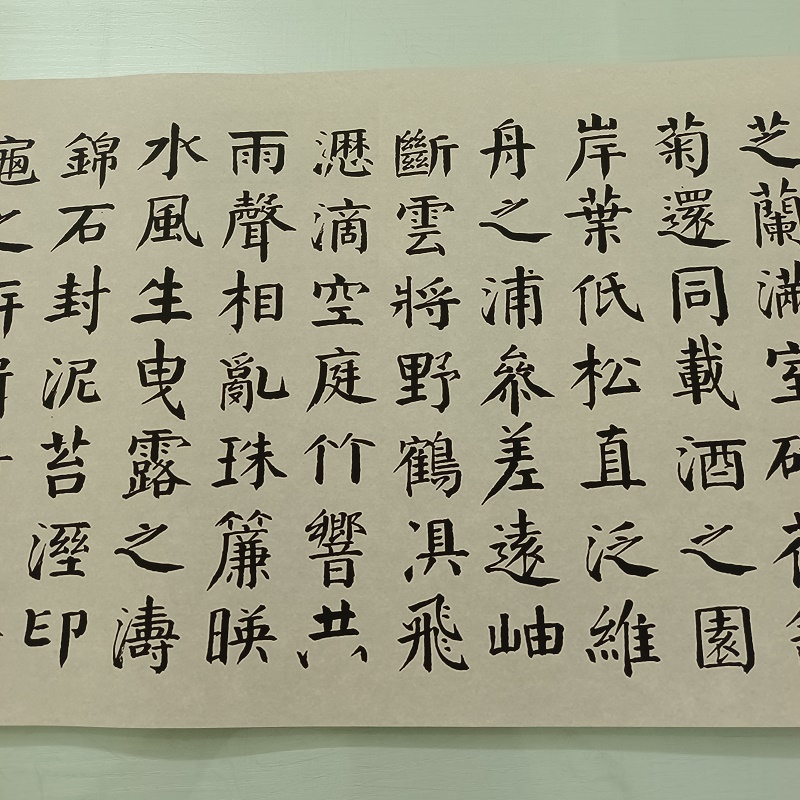 芝蘭滿室
菊還同載酒之園
岸葉低松直泛維
舟之浦參差遠岫
斷雲將野鶴俱飛
瀝滴空庭竹響共
雨聲相亂珠簾暎
水風生曳露之濤
錦石封泥苔溼印
龜之